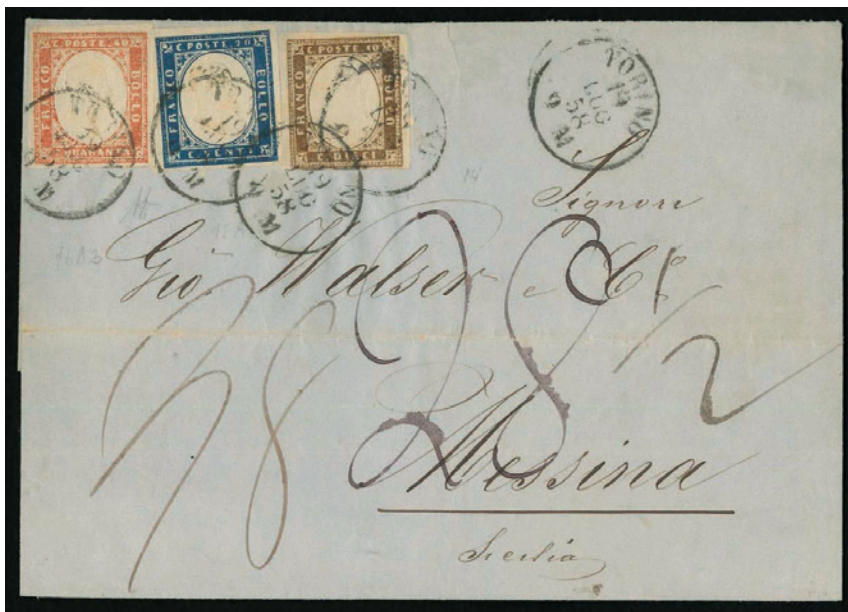 C. POSTE 40
FRANCO
BOLLO
C. POSTE 20
FRANCO
BOLLO
C. VENTI
C. POSTE 10
FRANCO
BOLLO
C. DIECI
TORINO
19
LUG
58
9 M
19
LUG
58
M
Signori
Gio Walser e Co.
28
28 1/2
Messina
Sicilia